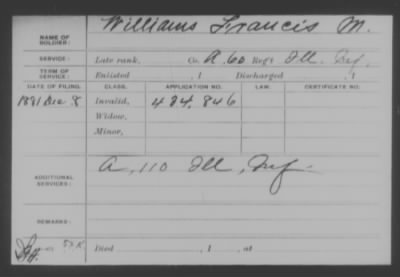 NAME OF SOLDIER: Williams Francis M.
SERVICE: Late rank, Co. A. 60 Reg't Ill. Inf.
TERM OF SERVICE: Enlisted , 1 Discharged , 1
DATE OF FILING. CLASS. APPLICATION NO. LAW. CERTIFICATE NO.
1881 Dec 8 Invalid, 434.846
Widow,
Minor,
ADDITIONAL SERVICES: A, 110 Ill, Inf
REMARKS:
Died , 1 , at